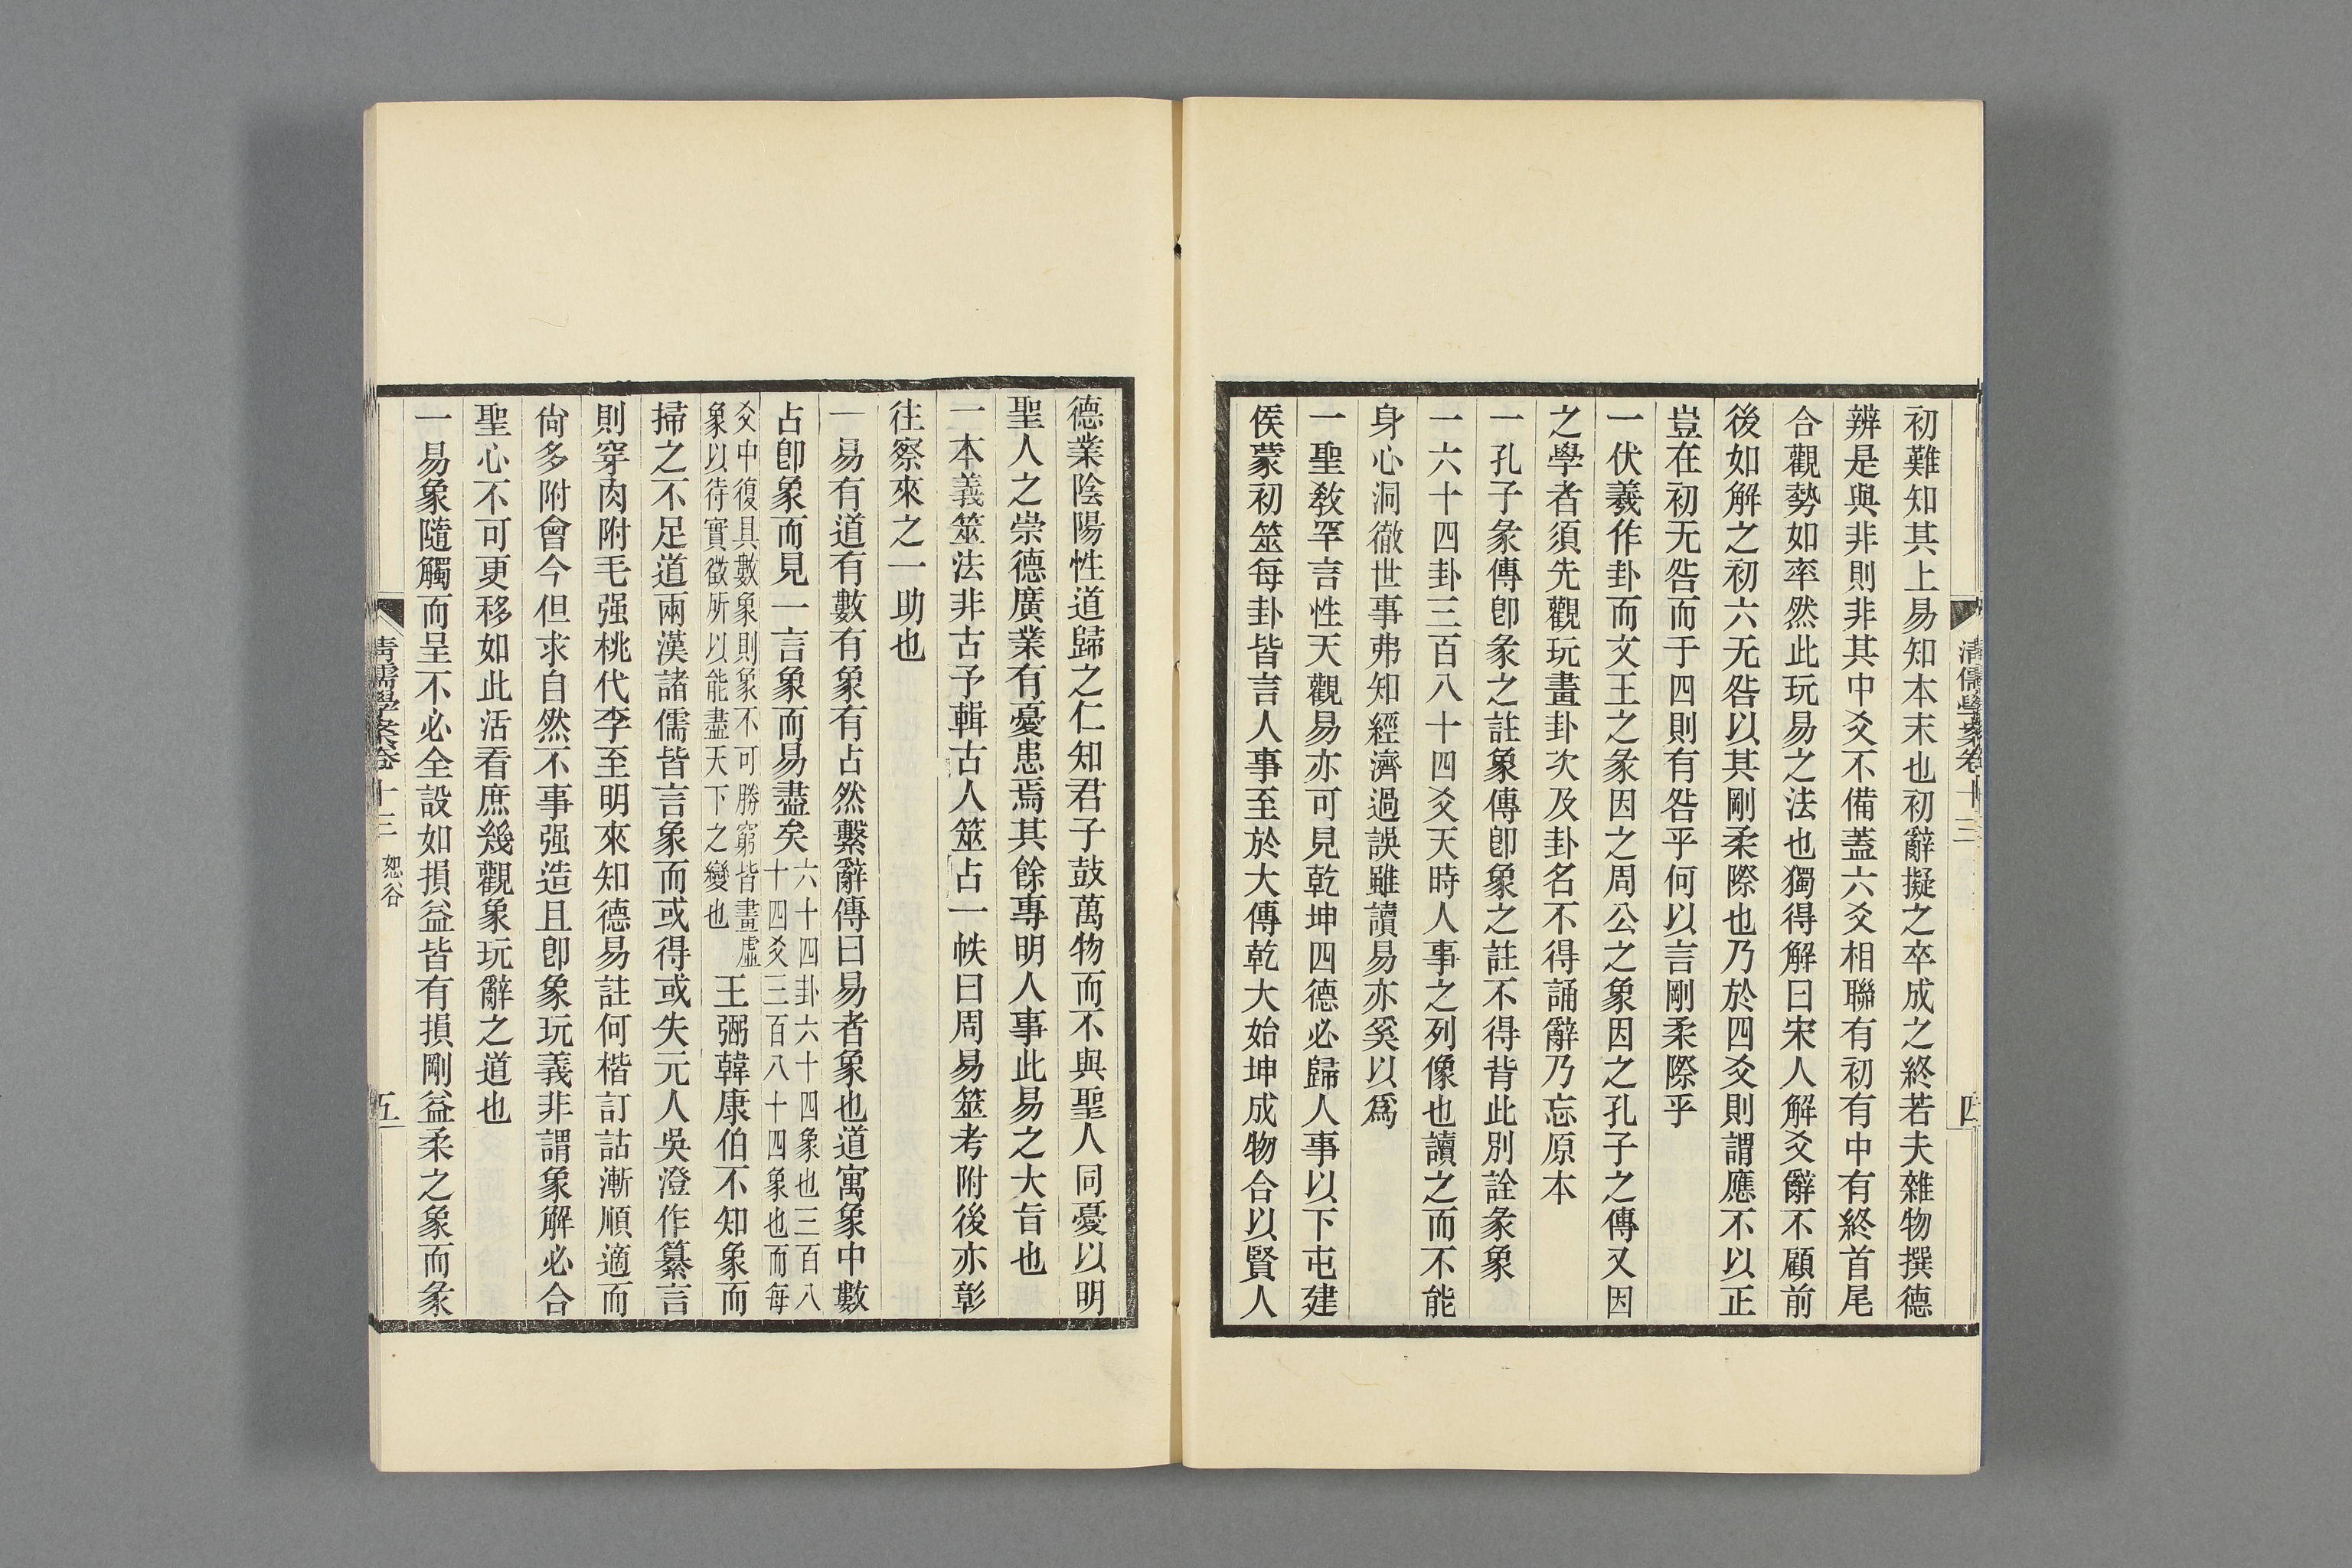 清儒學案卷十三
四
初難知其上易知本末也初辭擬之卒成之終若夫雜物撰德
辨是與非則非其中爻不備蓋六爻相聯有初有中有終首尾
合觀勢如率然此玩易之法也獨得解曰宋人解爻辭不顧前
後如解之初六无咎以其剛柔際也乃於四爻則謂應不以正
豈在初无咎而于四則有咎乎何以言剛柔際乎
一伏羲作卦而文王之彖因之周公之象因之孔子之傳又因
之學者須先觀玩畫卦次及卦名不得誦辭乃忘原本
一孔子彖傳卽彖之註象傳卽象之註不得背此別詮彖象
一六十四卦三百八十四爻天時人事之列像也讀之而不能
身心洞徹世事弗知經濟過誤雖讀易亦奚以爲
一聖敎罕言性天觀易亦可見乾坤四德必歸人事以下屯建
侯蒙初筮每卦皆言人事至於大傳乾大始坤成物合以賢人
德業陰陽性道歸之仁知君子鼓萬物而不與聖人同憂以明
聖人之崇德廣業有憂患焉其餘專明人事此易之大旨也
一本義筮法非古予輯古人筮占一帙曰周易筮考附後亦彰
往察來之一助也
一易有道有數有象有占然繫辭傳曰易者象也道寓象中數
占卽象而見一言象而易盡矣六十四卦六十四象也三百八
十四爻三百八十四象也而每
爻中復具數象則象不可勝窮皆畫虛
象以待實徵所以能盡天下之變也王弼韓康伯不知象而
掃之不足道兩漢諸儒皆言象而或得或失元人吳澄作纂言
則穿肉附毛强桃代李至明來知德易註何楷訂詁漸順適而
尙多附會今但求自然不事强造且卽象玩義非謂象解必合
聖心不可更移如此活看庶幾觀象玩辭之道也
一易象隨觸而呈不必全設如損益皆有損剛益柔之象而彖
清儒學案卷十三 恕谷
五